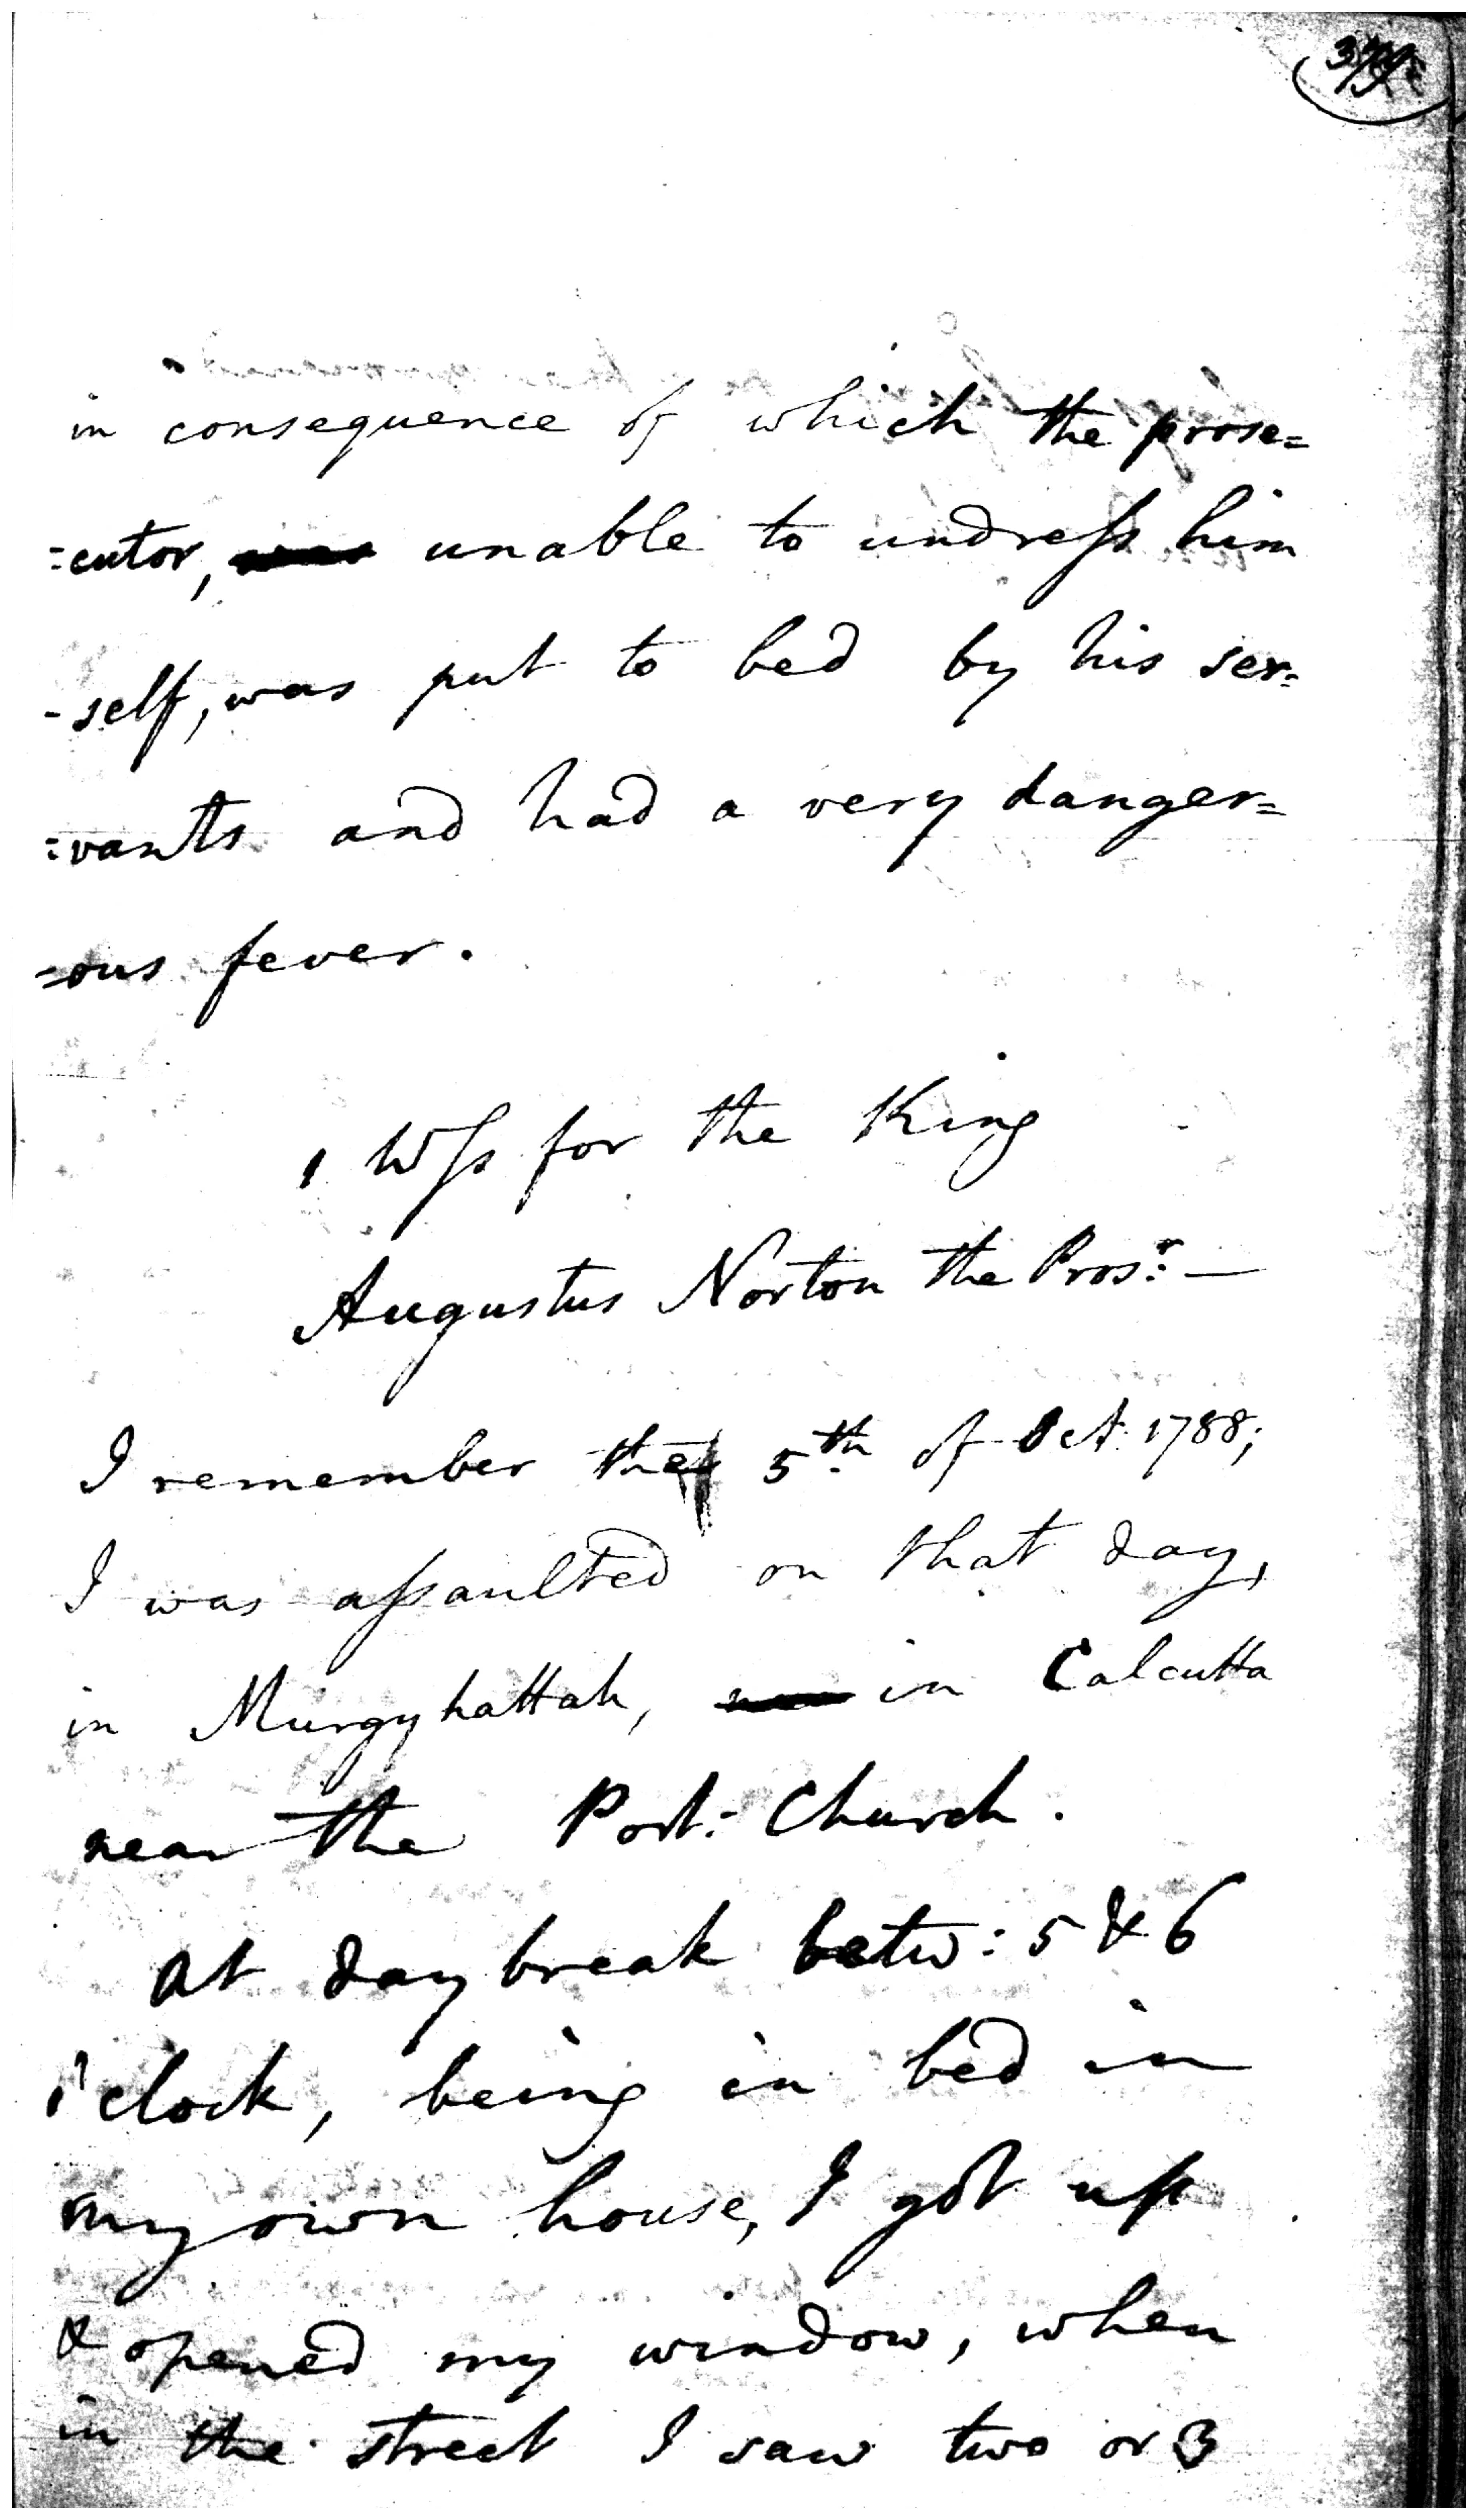 in consequence of which the prose=
=cutor, unable to undress him
-self, was put to bed by his ser=
=vants and had a very danger=
=ous fever.
1 Wss for the King
Augustus Norton the Pros:r —
I remember the 5th of Oct. 1788;
I was assaulted on that day,
in Murgyhattah, in Calcutta
near the Port: Church.
At day break betw: 5 & 6
o'clock, being in bed in
my own house, I got up
& opened my window, when
in the street I saw two or 3